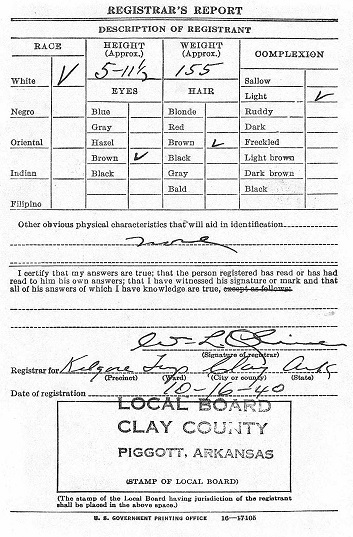 REGISTRAR'S REPORT
DESCRIPTION OF REGISTRANT
RACE HEIGHT (Approx.) WEIGHT (Approx.) COMPLEXION
White ✓ 5-11½ 155 Sallow
EYES HAIR Light ✓
Negro Blue Blonde Ruddy
Gray Red Dark
Oriental Hazel Brown ✓ Freckled
Brown ✓ Black Light brown
Indian Black Gray Dark brown
Bald Black
Filipino
Other obvious physical characteristics that will aid in identification
none
I certify that my answers are true; that the person registered has read or has had
read to him his own answers; that I have witnessed his signature or mark and that
all of his answers of which I have knowledge are true, except as follows:
(Signature of registrar)
Registrar for Kilgore Twp Clay Ark
(Precinct) (Ward) (City or county) (State)
Date of registration 10-16-40
LOCAL BOARD
CLAY COUNTY
PIGGOTT, ARKANSAS
(STAMP OF LOCAL BOARD)
(The stamp of the Local Board having jurisdiction of the registrant
shall be placed in the above space.)
U. S. GOVERNMENT PRINTING OFFICE 16—17105